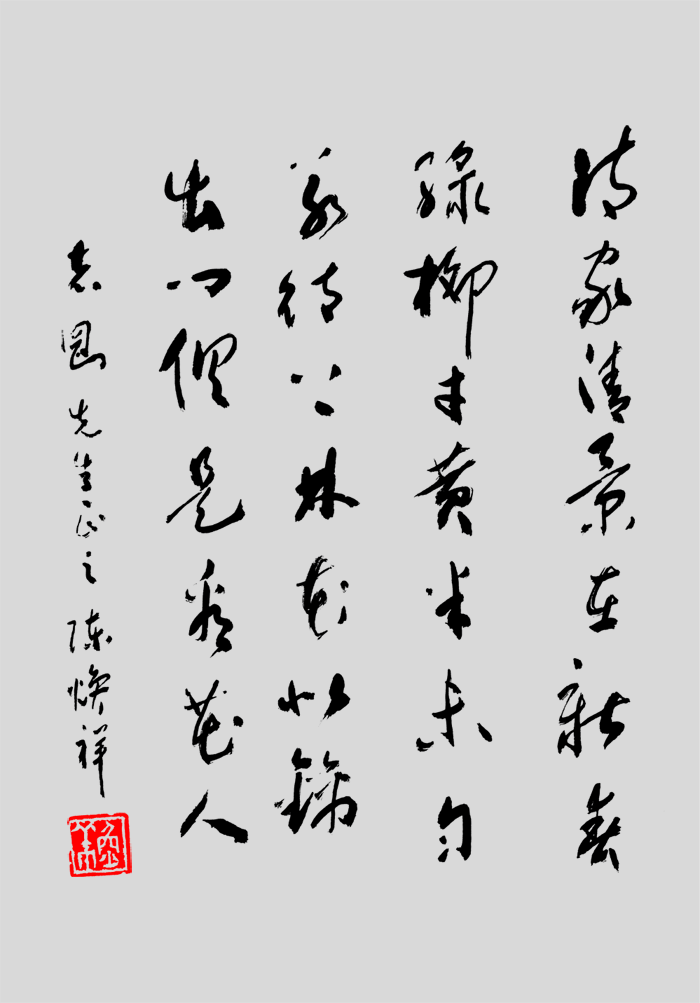 诗家清景在新春
绿柳才黄半未匀
若待上林花似錦
出门俱是看花人
先生正之 陈焕祥